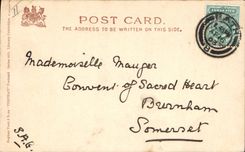 POST CARD.
THE ADDRESS TO BE WRITTEN ON THIS SIDE.
Mademoiselle Mauger
Convent of Sacred Heart
Burnham
Somerset
S.A.G.